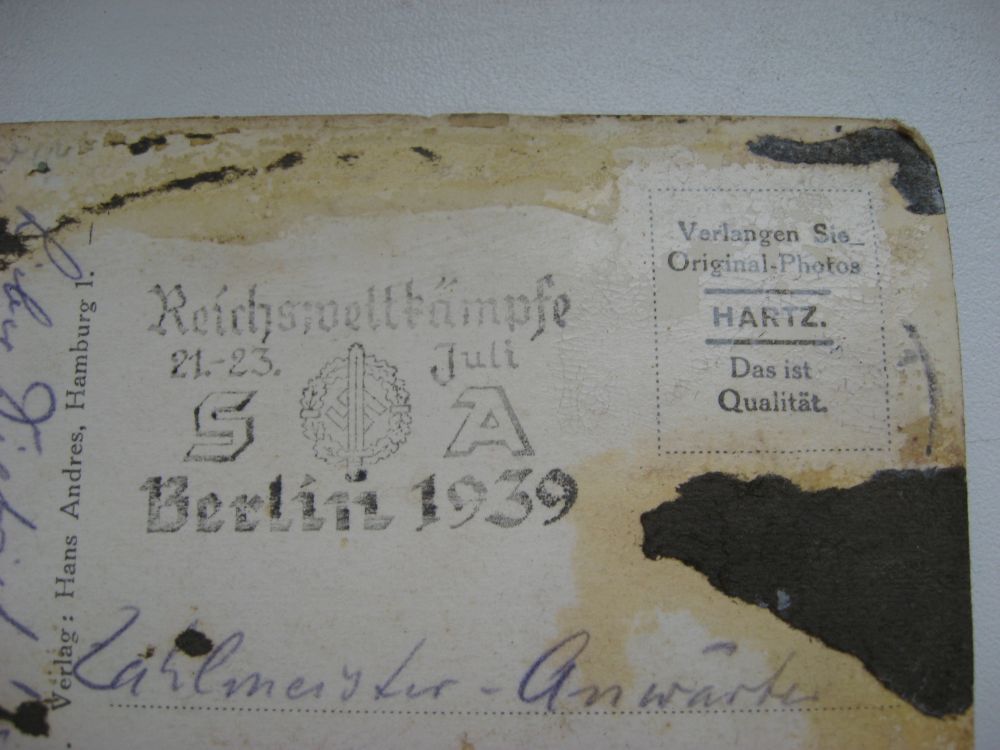 Verlangen Sie
Original-Photos
HARTZ.
Das ist
Qualität.
Reichswettkämpfe
21.-23. Juli
S A
Berlin 1939
Verlag: Hans Andres, Hamburg 1.
Zahlmeister-Anwärter